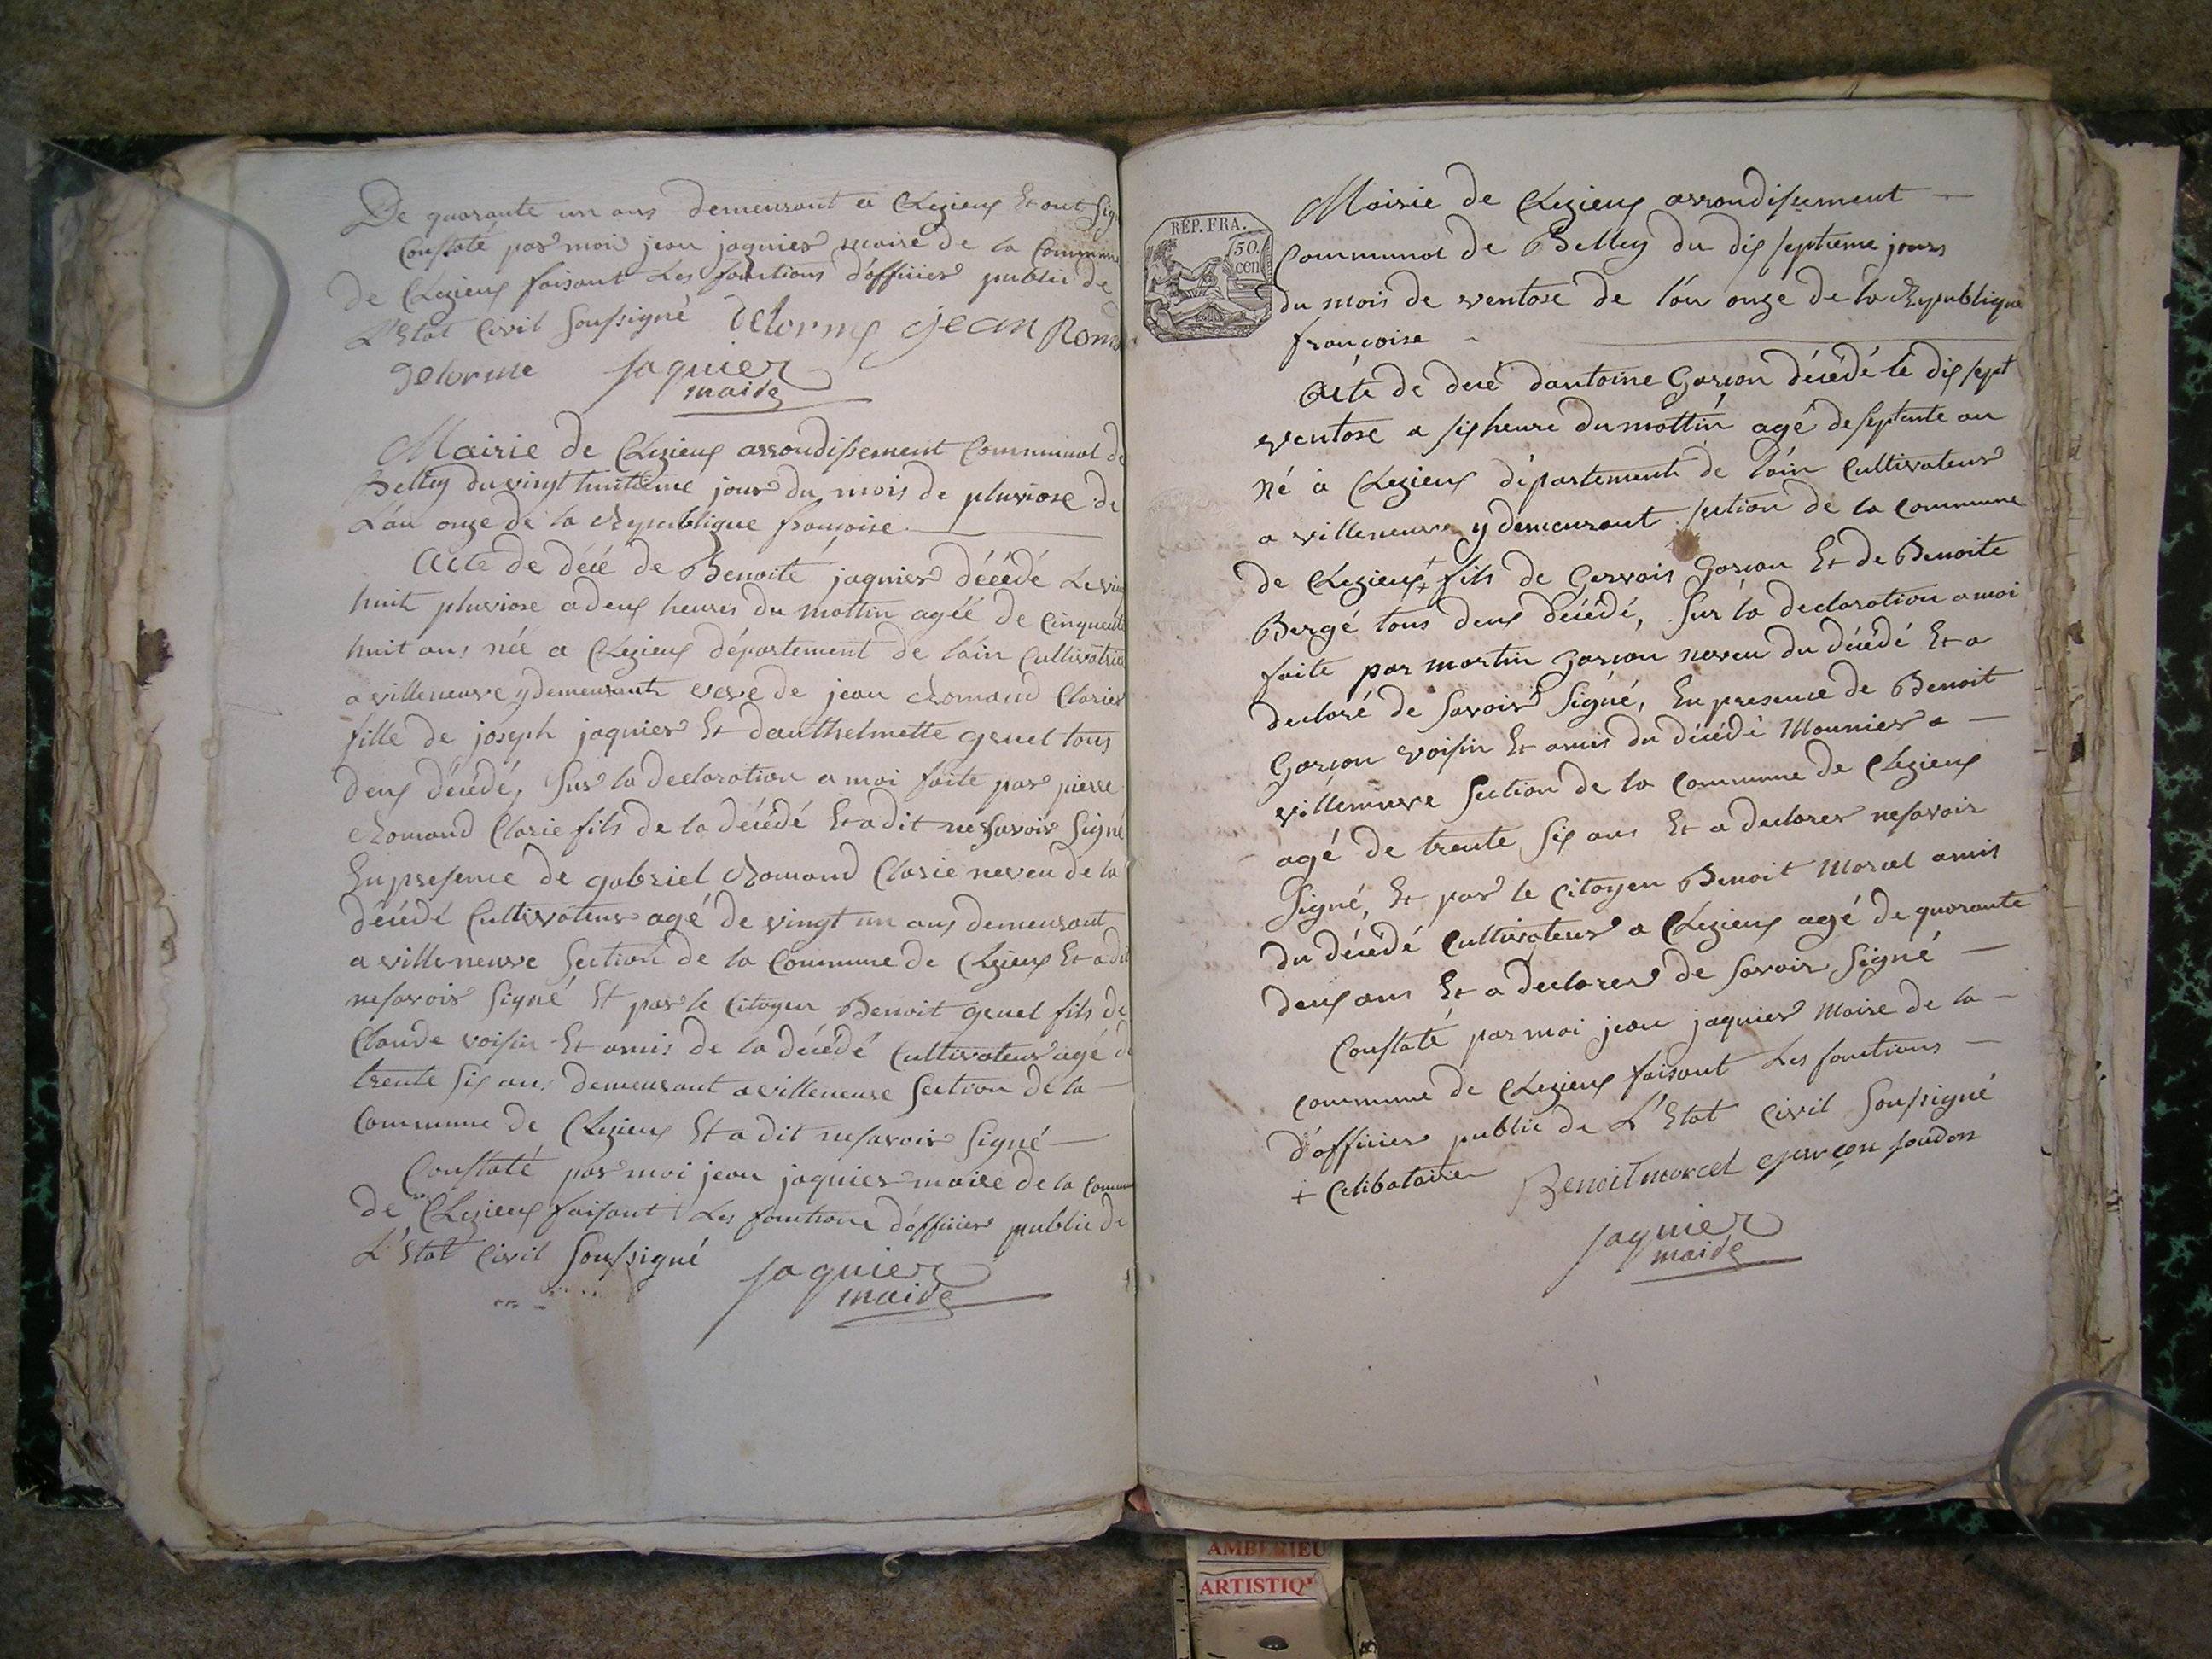 De quarante un ans demeurant a Chezieux Et ont Sig
Constaté par moi jean jaquier maire de la Commune
de Chezieux faisant Les fonctions d'officier public de
L'Etat Civil Soussigné Delorme jean Roma
Delorme jaquier
maire
Mairie de Chezieux arrondissement Communal de
Belley du vingt huitième jour du mois de pluviose de
L'an onze de la République françoise
Acte de décé de Benoite jaquier décédé Le vin
huit pluviose a deux heures du mattin agéé de Cinquante
huit ans née a Chezieux département de l'ain Cultivatrice
a villeneuve y demeurante veve de jean Romand Clarier
fille de joseph jaquier Et d'anthelmette genet tous
deux décédé, Sur la declaration a moi faite par pierre
Romand Clarie fils de la décédé Et a dit ne savoir Signé
En presence de gabriel Romand Clarie neveu de la
décédé Cultivateur agé de vingt un ans demeurant
a villeneuve Section de la Commune de Chezieux Et a dit
ne savoir Signé Et par le Citoyen Benoit genet fils de
Claude voisin Et amis de la décédé Cultivateur agé d
trente six ans demeurant a villeneuve Section de la
Commune de Chezieux Et a dit ne savoir Signé
Constaté par moi jean jaquier maire de la Commune
de Chezieux faisant Les fonctions d'officier public de
L'Etat Civil Soussigné jaquier
maire
RÉP. FRA.
50.
cen
Mairie de Chezieux arrondissement
Communal de Belley du dix septième jours
du mois de ventose de l'an onze de la République
françoise
Acte de decé dantoine Garçon décédé le dix sept
ventose a six heure du mattin agé de septante an
né a Chezieux département de l'ain Cultivateur
a villeneuve y demeurant section de la commune
de Chezieux + fils de Gervais Garçon Et de Benoite
Bergé tous deux décédé, Sur la declaration a moi
faite par martin garçon neveu du décédé Et a
declaré de Savoir Signé, En presence de Benoit
Garçon voisin Et amis du décédé Mounier a
villeneuve Section de la Commune de Chezieux
agé de trente Six ans Et a declarer ne savoir
Signé, Et par le Citoyen Benoit Marcel amis
du décédé Cultivateur a Chezieux agé de quarante
deux ans Et a declarer de Savoir Signé
Constaté par moi jean jaquier Maire de la
commune de Chezieux faisant Les fonctions
d'officier public de L'Etat Civil Soussigné
+ Celibataire Benoit marcel garçon
jaquier
maire
AMBERIEU
ARTISTIQ